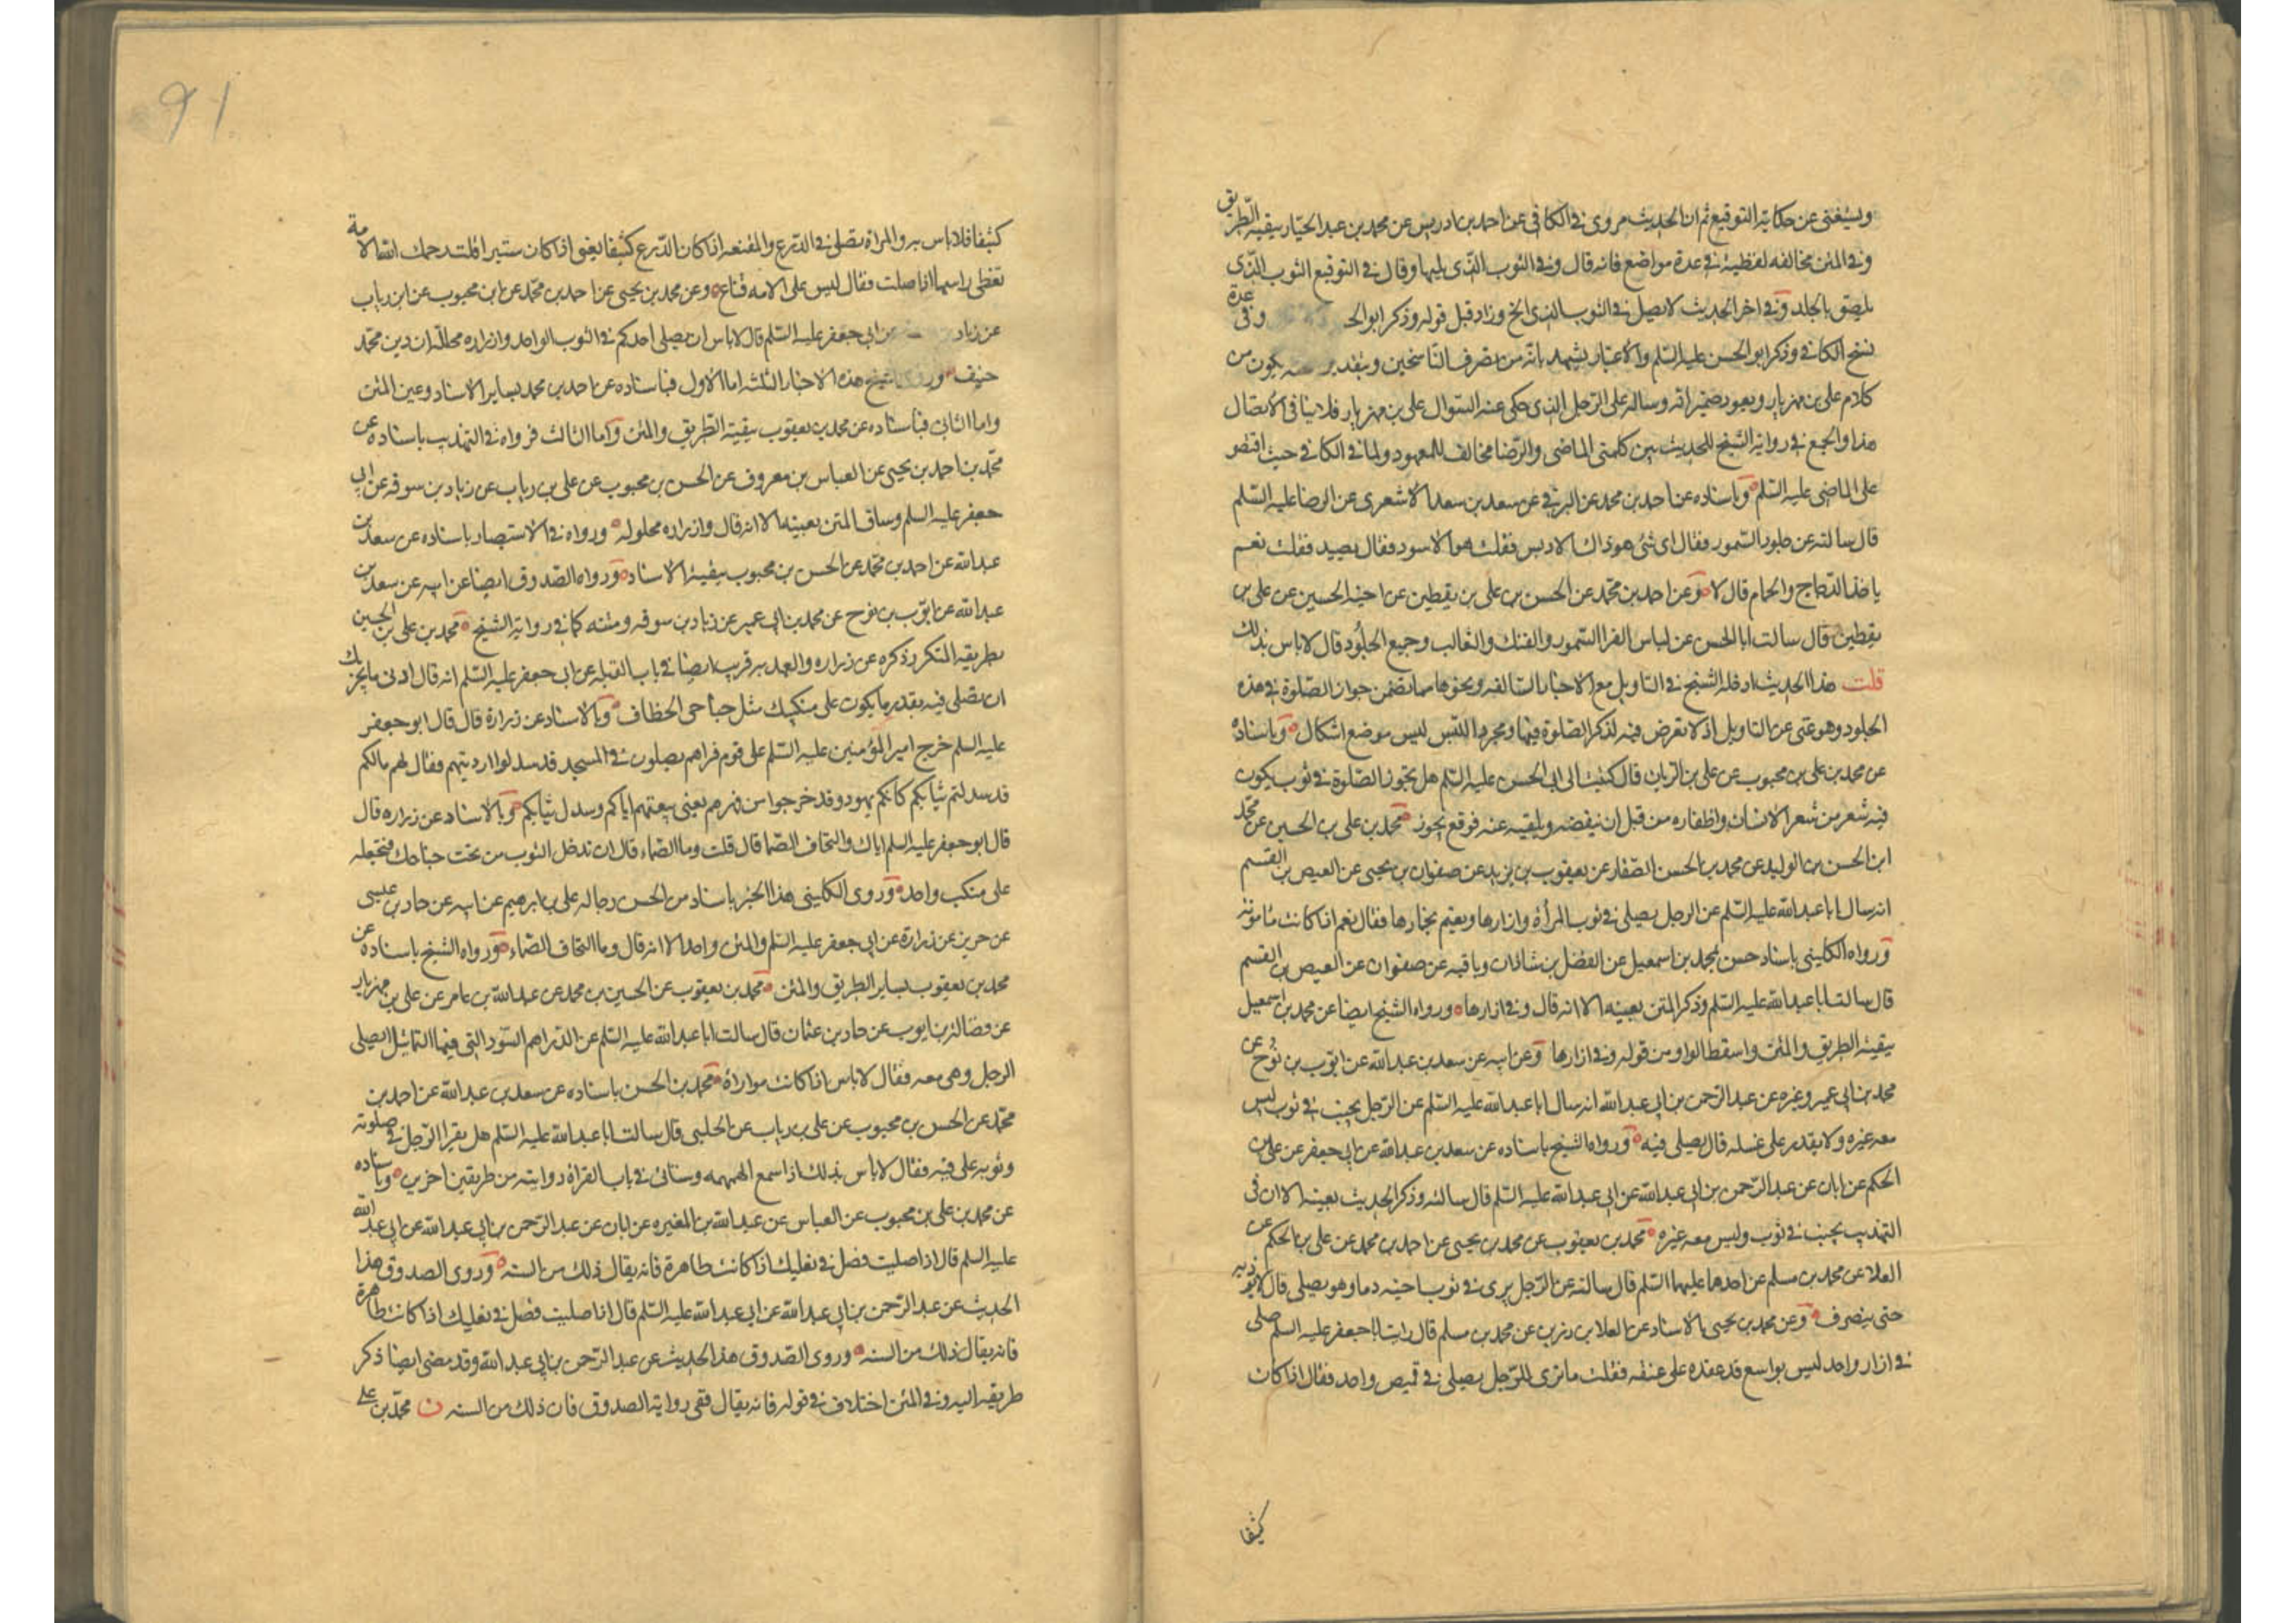 ويستغنى عن حكاية التوقيع ثم ان الحديث مروى في الكافي عن احمد بن ادريس عن محمد بن عبد الجبار ببقية الطريق
وفي المتن مخالفة لفظية في عدة مواضع فانه قال وفي الثوب الذى يليها وقال في التوقيع الثوب الذى
يلصق بالجلد وفي اخر الحديث لا تصل في الثوب الذى الخ وزاد قبل قوله وذكر ابو الحـ وفى عدة
نسخ الكافي وذكر ابو الحسن عليه السلم والاعتبار يشهد بانه من تصرف الناسخين وبتقدير يكون من
كلام على بن مهزيار ويعود ضمير انه وساله على الرجل الذى حكى عنه السوال على بن مهزيار فلا ينافى الاتصال
هذا والجمع في رواية الشيخ للحديث بين كلمتى الماضى والرضا مخالف للمعهود ولما في الكافي حيث اقتصر
على الماضى عليه السلم وباسناده عن احمد بن محمد عن البرقي عن سعد بن سعد الاشعرى عن الرضا عليه السلم
قال سالته عن جلود السمور فقال اى شئ هو ذاك الادبس فقلت هو الاسود فقال يصيد فقلت نعم
ياخذ الدجاج والحمام قال لا وعن احمد بن محمد عن الحسن بن على بن يقطين عن اخيه الحسين عن على بن
يقطين قال سالت ابا الحسن عن لباس الفرا السمور والفنك والثعالب وجميع الجلود قال لا باس بذلك
قلت هذا الحديث ادخله الشيخ في التاويل مع الاخبار السالفه ونحوها مما تضمن جواز الصلوة في هذه
الجلود وهو غنى عن التاويل اذ لا تعرض فيه لذكر الصلوة فيها ومجرد اللبس ليس موضع اشكال وباسناده
عن محمد بن على بن محبوب عن على بن الريان قال كتبت الى ابى الحسن عليه السلم هل يجوز الصلوة في ثوب يكون
فيه شعر من شعر الانسان واظفاره من قبل ان ينفضه ويلقيه عنه فوقع يجوز محمد بن على بن الحسين عن محمد
ابن الحسن بن الوليد عن محمد بن الحسن الصفار عن يعقوب بن يزيد عن صفوان بن يحيى عن العيص بن القسم
انه سال ابا عبد الله عليه السلم عن الرجل يصلى في ثوب المرأة وازارها ويعتم بخمارها فقال نعم اذا كانت مامونة
ورواه الكلينى باسناد حسن محمد بن اسمعيل عن الفضل بن شاذان وباقيه عن صفوان عن العيص بن القسم
قال سالت ابا عبد الله عليه السلم وذكر المتن بعينه الا انه قال وفي ازارها ورواه الشيخ ايضا عن محمد بن اسمعيل
ببقية الطريق والمتن واسقط الواو من قوله وفي ازارها وعن ابيه عن سعد بن عبد الله عن ايوب بن نوح عن
محمد بن ابى عمير وغيره عن عبد الرحمن بن ابى عبد الله انه سال ابا عبد الله عليه السلم عن الرجل يجنب في ثوب ليس
معه غيره ولا يقدر على غسله قال يصلى فيه ورواه الشيخ باسناده عن سعد بن عبد الله عن ابى جعفر عن على بن
الحكم عن ابان عن عبد الرحمن بن ابى عبد الله عن ابى عبد الله عليه السلم قال سالته وذكر الحديث بعينه الا ان فى
التهذيب يجنب في ثوب وليس معه غيره محمد بن يعقوب عن محمد بن يحيى عن احمد بن محمد عن على بن الحكم عن
العلا عن محمد بن مسلم عن احدهما عليهما السلم قال سالته عن الرجل يرى في ثوب اخيه دما وهو يصلى قال لا يوذيه
حتى ينصرف وعن محمد بن يحيى بالاسناد عن العلا بن رزين عن محمد بن مسلم قال رايت ابا جعفر عليه السلم صلى
في ازار واحد ليس بواسع قد عقده على عنقه فقلت ما ترى للرجل يصلى في قميص واحد فقال اذا كان
كثيفا
91
كثيفا فلا باس به والمراة تصلى في الدرع والمقنعه اذا كان الدرع كثيفا يعنى اذا كان ستيرا قلت رحمك الله الامة
تغطى راسها اذا صلت فقال ليس على الامه قناع وعن محمد بن يحيى عن احمد بن محمد عن ابن محبوب عن ابن رياب
عن زياد عن ابى جعفر عليه السلم قال لا باس ان يصلى احدكم في الثوب الواحد وازراره محللة ان دين محمد
حنيف وروى الشيخ هذه الاخبار الثلثه اما الاول فباسناده عن احمد بن محمد بساير الاسناد وعين المتن
واما الثانى فباسناده عن محمد بن يعقوب ببقية الطريق والمتن واما الثالث فرواه في التهذيب باسناده عن
محمد بن احمد بن يحيى عن العباس بن معروف عن الحسن بن محبوب عن على بن رياب عن زياد بن سوقه عن ابى
جعفر عليه السلم وساق المتن بعينه الا انه قال وازراره محلوله ورواه في الاستبصار باسناده عن سعد بن
عبد الله عن احمد بن محمد عن الحسن بن محبوب ببقية الاسناد ورواه الصدوق ايضا عن ابيه عن سعد بن
عبد الله عن ايوب بن نوح عن محمد بن ابى عمير عن زياد بن سوقه ومتنه كما في رواية الشيخ محمد بن على بن الحسين
بطريقه المتكرر ذكره عن زراره والعهد به قريب ايضا في باب القبله عن ابى جعفر عليه السلم انه قال ادنى ما يجزيك
ان تصلى فيه بقدر ما يكون على منكبيك مثل جناحى الخطاف وبالاسناد عن زرارة قال قال ابو جعفر
عليه السلم خرج امير المؤمنين عليه السلم على قوم فراهم يصلون في المسجد قد سدلوا ارديتهم فقال لهم مالكم
قد سدلتم ثيابكم كانكم يهود وقد خرجوا من فهرهم يعنى بيعتهم اياكم وسدل ثيابكم وبالاسناد عن زراره قال
قال ابو جعفر عليه السلم اياك والتحاف الصما قال قلت وما الصماء قال ان تدخل الثوب من تحت جناحك فتجعله
على منكب واحد وروى الكلينى هذا الخبر باسناد من الحسن رجاله على بن ابرهيم عن ابيه عن حماد بن عيسى
عن حريز عن زرارة عن ابى جعفر عليه السلم والمتن واحد الا انه قال وما التحاف الصماء ورواه الشيخ باسناده عن
محمد بن يعقوب بساير الطريق والمتن محمد بن يعقوب عن الحسين بن محمد عن عبد الله بن عامر عن على بن مهزيار
عن فضالة بن ايوب عن حماد بن عثمان قال سالت ابا عبد الله عليه السلم عن الدراهم السود التى فيها التماثيل ايصلى
الرجل وهى معه فقال لا باس اذا كانت مواراة محمد بن الحسن باسناده عن سعد بن عبد الله عن احمد بن
محمد عن الحسن بن محبوب عن على بن رياب عن الحلبى قال سالت ابا عبد الله عليه السلم هل يقرا الرجل في صلوته
وثوبه على فيه فقال لا باس بذلك اذا سمع الهمهمه وستاتى في باب القراة روايته من طريقين اخرين وباسناده
عن محمد بن على بن محبوب عن العباس عن عبد الله بن المغيره عن ابان عن عبد الرحمن بن ابى عبد الله عن ابى عبد الله
عليه السلم قال اذا صليت فصل في نعليك اذا كانت طاهرة فانه يقال ذلك من السنه وروى الصدوق هذا
الحديث عن عبد الرحمن بن ابى عبد الله عن ابى عبد الله عليه السلم قال اذا صليت فصل في نعليك اذا كانت طاهرة
فانه يقال ذلك من السنه وروى الصدوق هذا الحديث عن عبد الرحمن بن ابى عبد الله وقد مضى ايضا ذكر
طريقه اليه وفي المتن اختلاف في قوله فانه يقال ففى رواية الصدوق فان ذلك من السنه ن محمد بن على